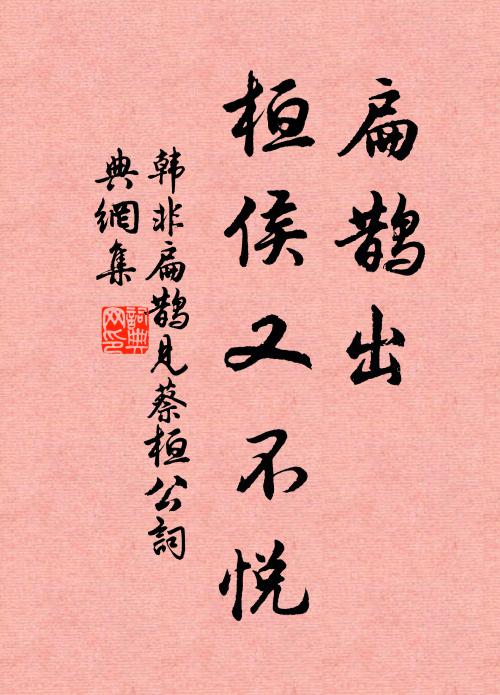 扁鹊出
桓侯又不悦
韩非扁鹊见蔡桓公詞
典網集
詞典
网印